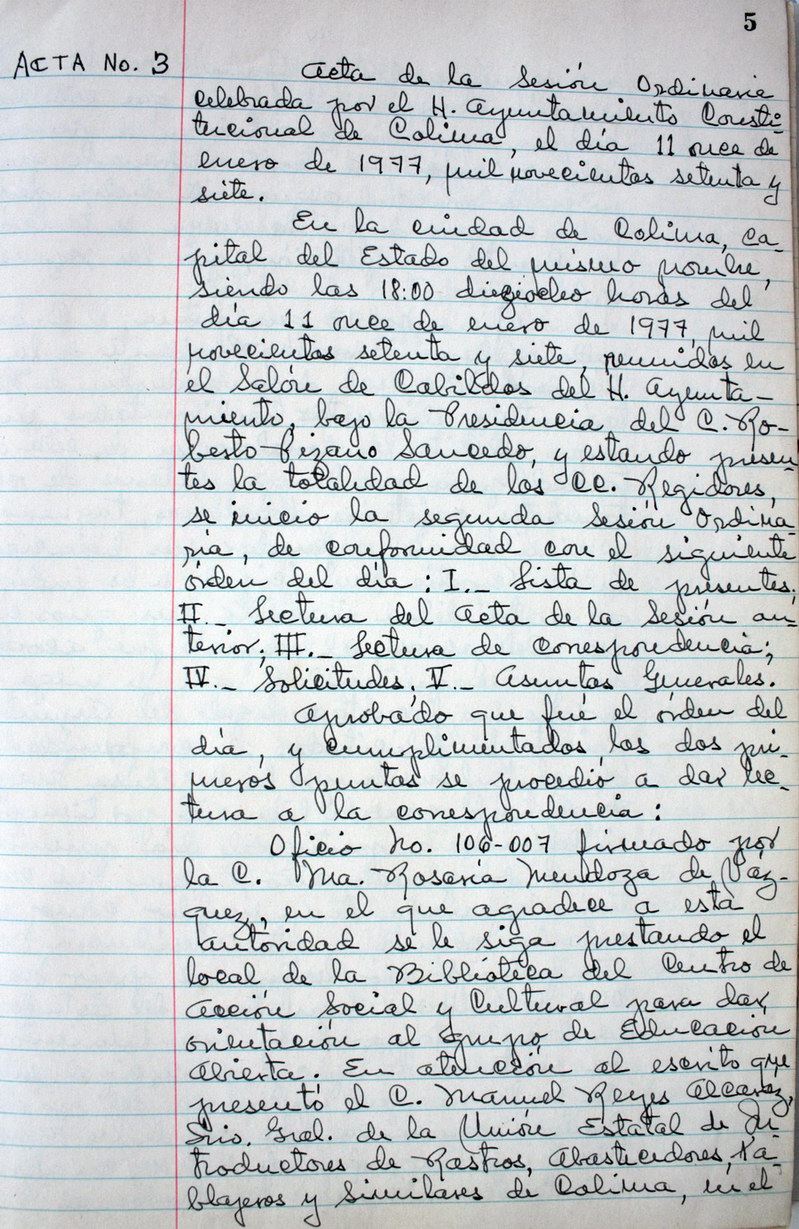 5
ACTA No. 3
Acta de la Sesión Ordinaria
celebrada por el H. Ayuntamiento Consti-
tucional de Colima, el día 11 once de
enero de 1977, mil novecientos setenta y
siete.
En la ciudad de Colima, Ca-
pital del Estado del mismo nombre,
siendo las 18:00 dieciocho horas del
día 11 once de enero de 1977, mil
novecientos setenta y siete, reunidos en
el Salón de Cabildos del H. Ayunta-
miento, bajo la Presidencia del C. Ro-
berto Pizano Saucedo, y estando presen-
tes la totalidad de los CC. Regidores,
se inicio la segunda Sesión Ordina-
ria, de conformidad con el siguiente
órden del día: I.- Lista de presentes;
II.- Lectura del Acta de la Sesión an-
terior; III.- Lectura de Correspondencia;
IV.- Solicitudes. V.- Asuntos Generales.
Aprobado que fué el órden del
día, y cumplimentados los dos pri-
meros puntos se procedió a dar lec-
tura a la correspondencia:
Oficio No. 106-007 firmado por
la C. Ma. Rosaria Mendoza de Váz-
quez, en el que agradece a esta
autoridad se le siga prestando el
local de la Biblioteca del Centro de
Acción Social y Cultural para dar
orientación al grupo de Educación
Abierta. En atención al escrito que
presentó el C. Manuel Reyes Alcaraz,
Srio. Gral. de la Unión Estatal de In-
troductores de Rastros, Abastecedores, Ta-
blajeros y Similares de Colima, en el